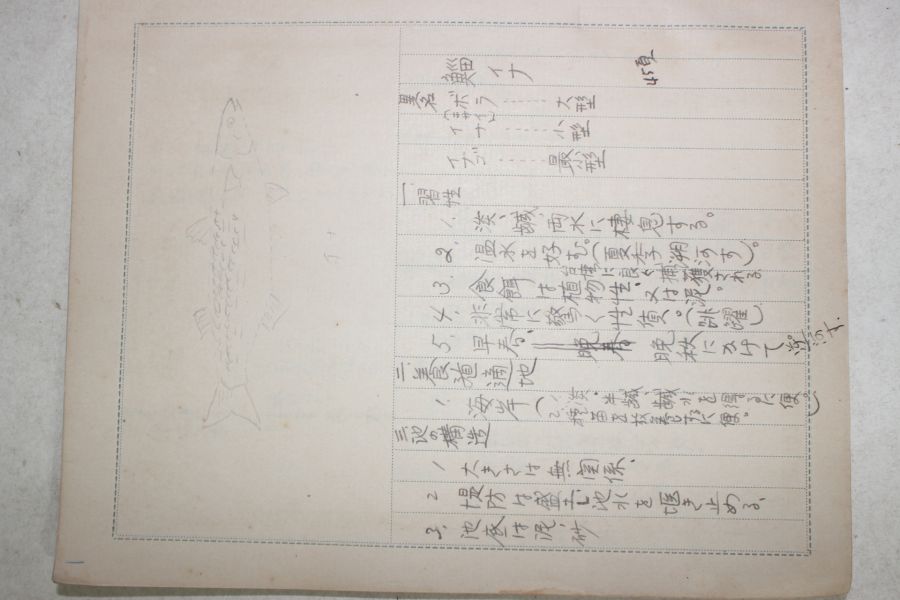 45頁
鯔 イナ
異名 ボラ・・・・・・大型
イナ・・・・・・小型
イナゴ・・・・・・最小型
一、習性
1. 淡、鹹、両水に棲息する。
2. 温水を好む。(夏季溯河す)。
3. 食餌は植物性、又は泥。
4. 非常に驚く性質。(跳躍)
5. 早春、晩秋にかけて
二、養殖適地
1. 海岸
三、池の構造
1 大きさは無関係、
2 堤防は盛土し池水を堰き止める、
3. 池底は泥、砂